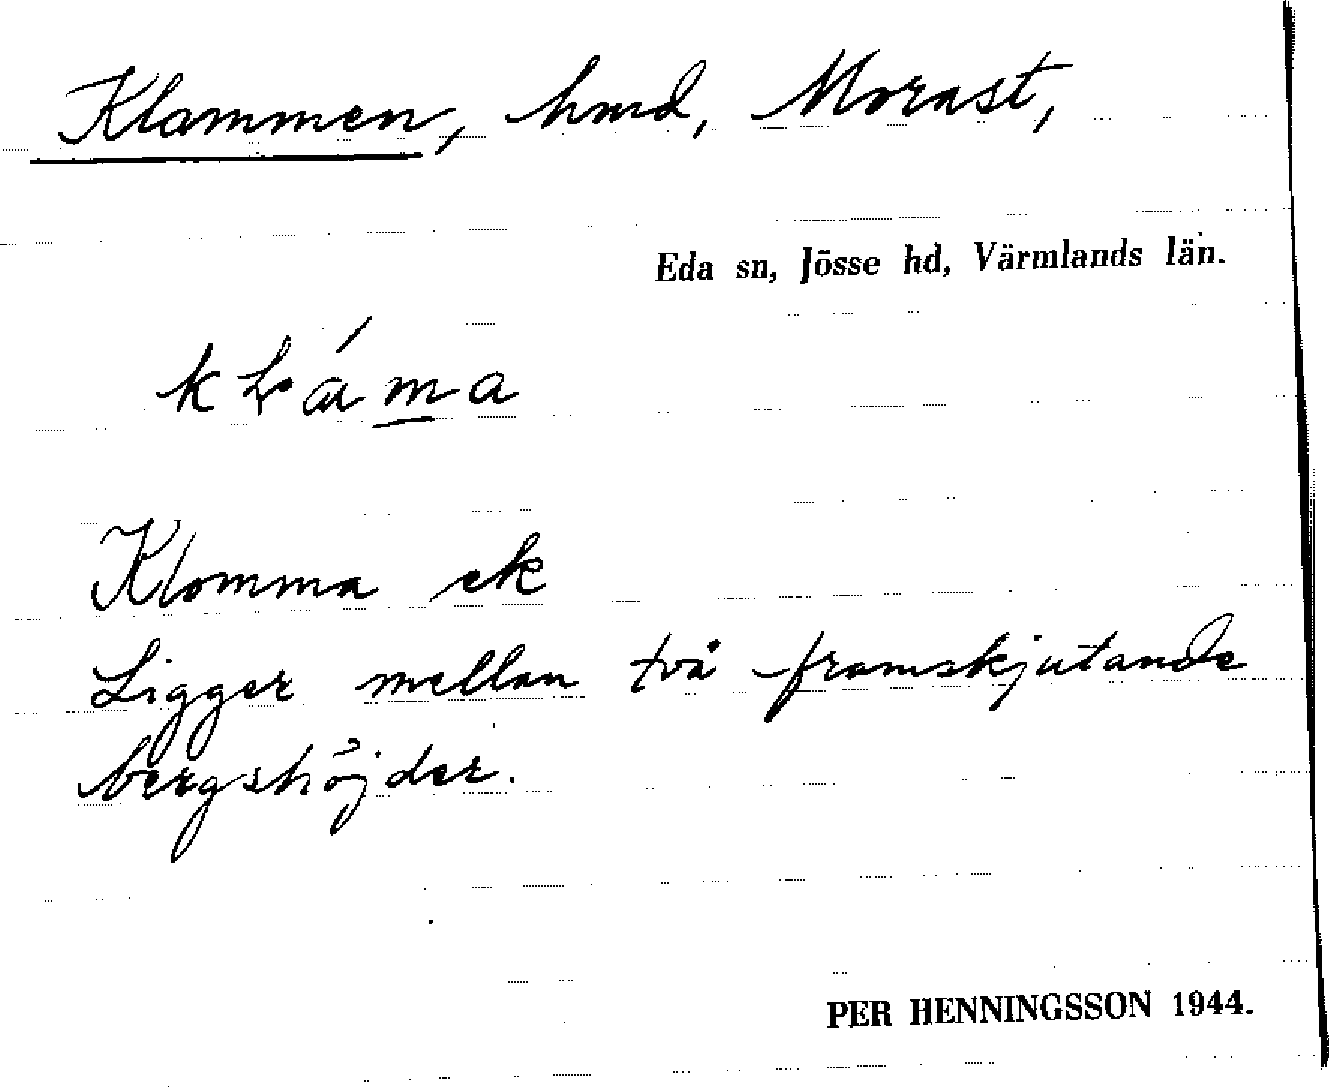 Klammen, hmd, Morast,
Eda sn, Jösse hd, Värmlands län.
Klomma ek
Ligger mellan två framskjutande
bergshöjder.
PER HENNINGSSON 1944.